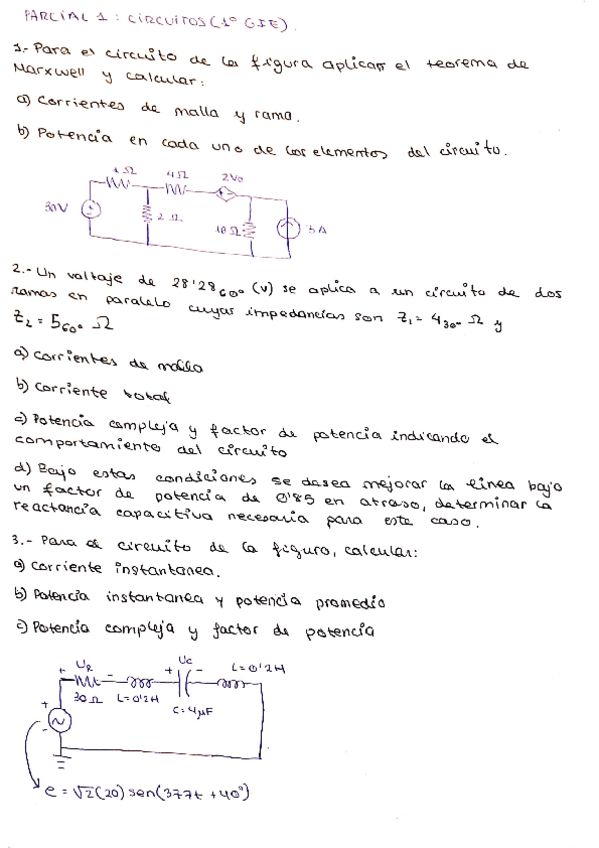 PARCIAL 1: CIRCUITOS (1º GIE).
1.- Para el circuito de la figura aplicar el teorema de
Marxwell y calcular:
a) Corrientes de malla y rama.
b) Potencia en cada uno de los elementos del circuito.
4Ω 2Vo
30V 2Ω 10Ω 3A
2.- Un voltaje de 28'28 60º (V) se aplica a un circuito de dos
ramas en paralelo cuyas impedancias son Z1 = 4 30º Ω y
Z2 = 5 60º Ω
a) corrientes de malla
b) corriente total
c) Potencia compleja y factor de potencia indicando el
comportamiento del circuito
d) Bajo estas condiciones se desea mejorar la linea bajo
un factor de potencia de 0'85 en atraso, determinar la
reactancia capacitiva necesaria para este caso.
3.- Para el circuito de la figura, calcular:
a) Corriente instantanea.
b) Potencia instantanea y potencia promedio
c) Potencia compleja y factor de potencia
+ UR - + Uc - L=0'2H
30Ω L=0'2H C=4μF
+
-
e = √2(20) sen(377t + 40º)